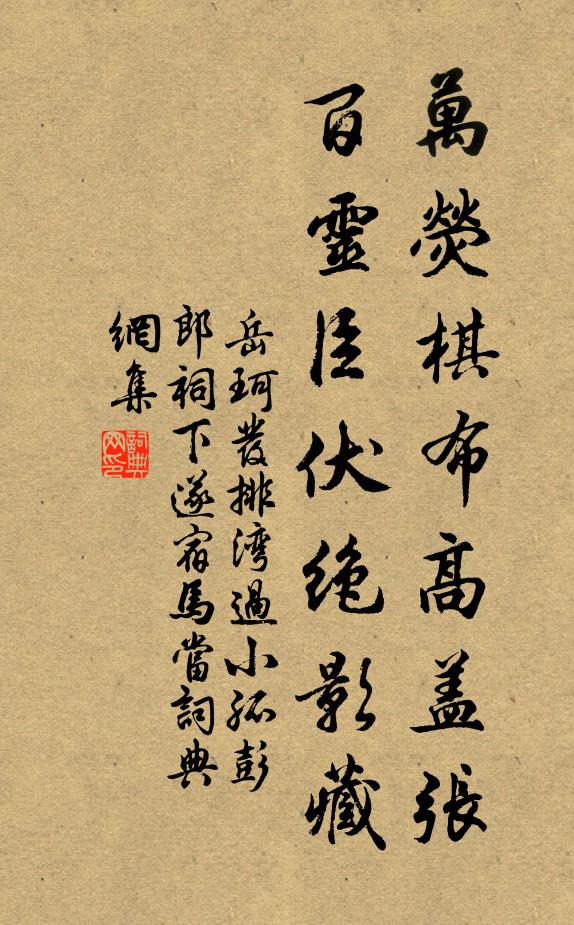 萬熒棋布高盖張
百靈臣伏絶影藏
岳珂發排湾過小孤彭
郎祠下遂宿馬當詞典
網集
詞典網印